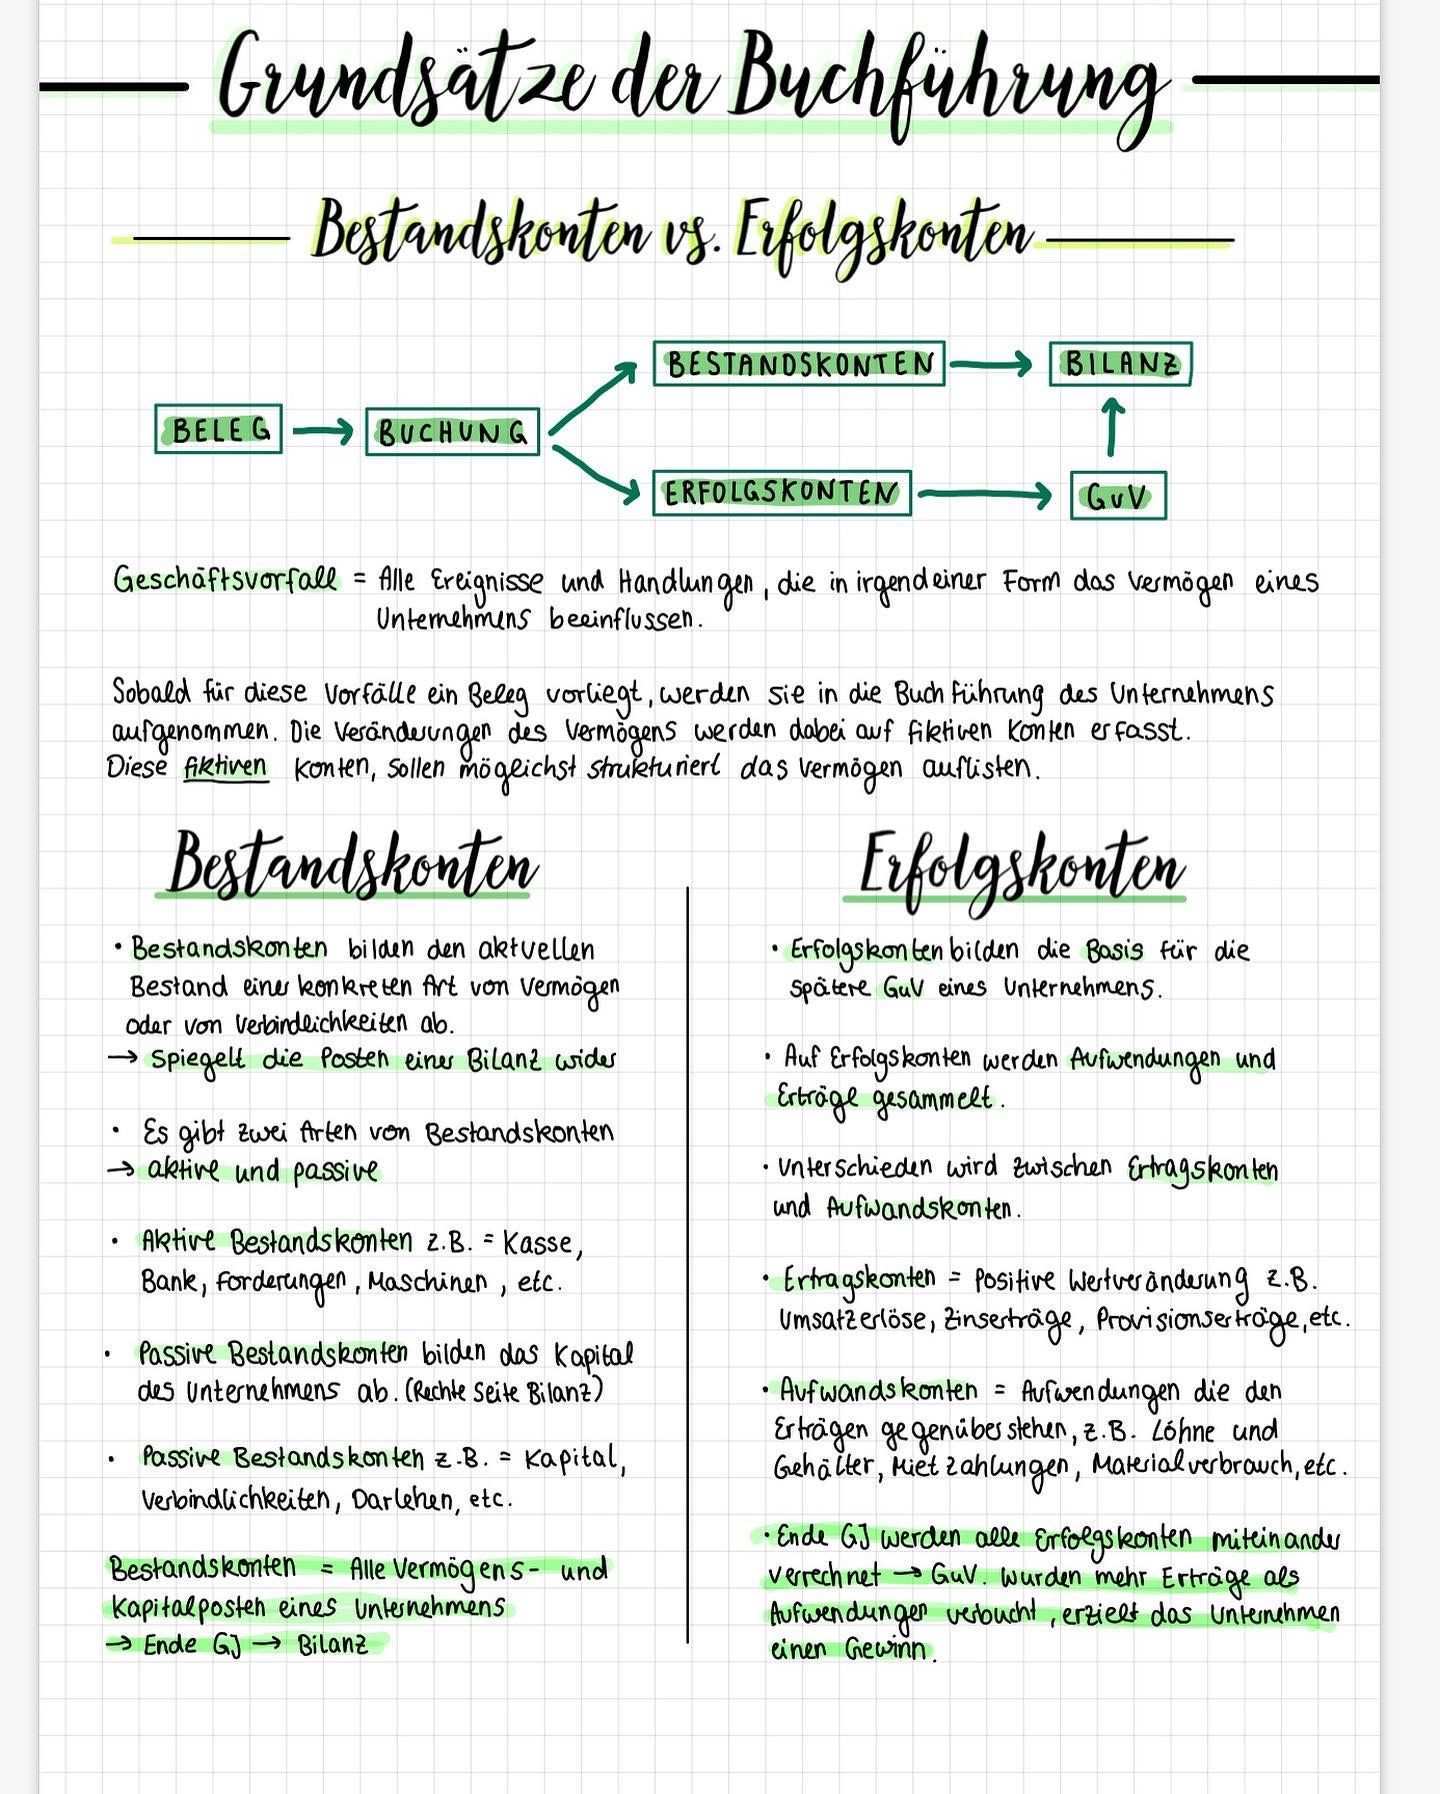 Grundsätze der Buchführung
Bestandskonten vs. Erfolgskonten
BESTANDSKONTEN
BILANZ
BELEG
BUCHUNG
ERFOLGSKONTEN
GuV
Geschäftsvorfall = Alle Ereignisse und Handlungen, die in irgendeiner Form das Vermögen eines
Unternehmens beeinflussen.
Sobald für diese Vorfälle ein Beleg vorliegt, werden sie in die Buchführung des Unternehmens
aufgenommen. Die Veränderungen des Vermögens werden dabei auf fiktiven Konten erfasst.
Diese fiktiven Konten, sollen möglichst strukturiert das Vermögen auflisten.
Bestandskonten
• Bestandskonten bilden den aktuellen
Bestand einer konkreten Art von Vermögen
oder von Verbindlichkeiten ab.
→ Spiegelt die Posten einer Bilanz wider
• Es gibt zwei Arten von Bestandskonten
→ aktive und passive
• Aktive Bestandskonten z.B. = Kasse,
Bank, Forderungen, Maschinen, etc.
• Passive Bestandskonten bilden das Kapital
des Unternehmens ab. (Rechte Seite Bilanz)
• Passive Bestandskonten z.B. = Kapital,
Verbindlichkeiten, Darlehen, etc.
Bestandskonten = Alle Vermögens- und
Kapitalposten eines Unternehmens
→ Ende GJ → Bilanz
Erfolgskonten
• Erfolgskonten bilden die Basis für die
spätere GuV eines Unternehmens.
• Auf Erfolgskonten werden Aufwendungen und
Erträge gesammelt.
• Unterschieden wird zwischen Ertragskonten
und Aufwandskonten.
• Ertragskonten = Positive Wertveränderung z.B.
Umsatzerlöse, Zinserträge, Provisionserträge, etc.
• Aufwandskonten = Aufwendungen die den
Erträgen gegenüber stehen, z.B. Löhne und
Gehälter, Mietzahlungen, Materialverbrauch, etc.
• Ende GJ werden alle Erfolgskonten miteinander
verrechnet → GuV. Wurden mehr Erträge als
Aufwendungen verbucht, erzielt das Unternehmen
einen Gewinn.